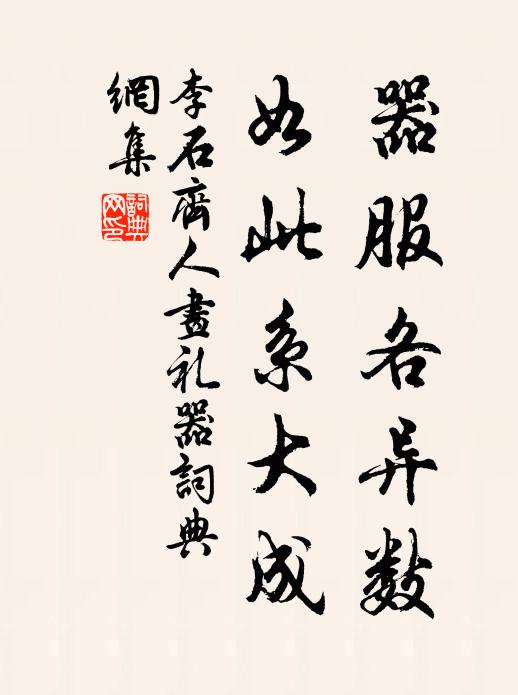 器服各异数
如此系大成
李石齊人畫礼器詞典
網集
詞典
网印